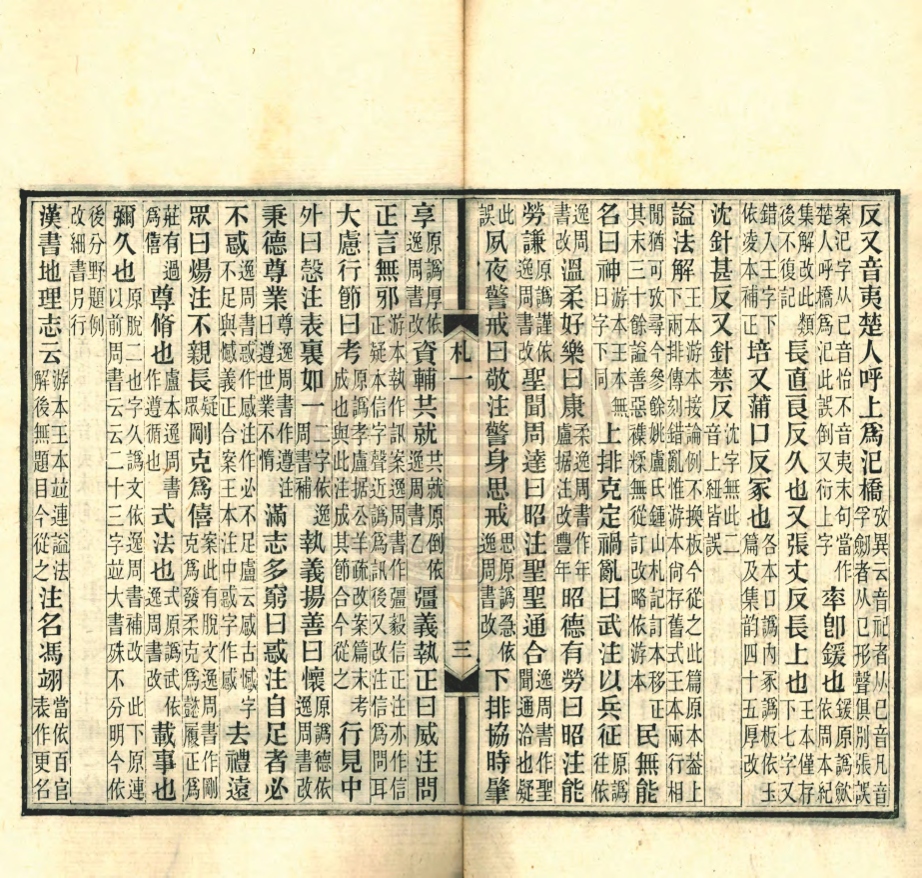 反又音夷楚人呼上爲汜橋攷異云音祀者从巳音凡音孚劒者从㔾形聲俱別張誤
案汜字从已音怡不音夷末句當作楚人呼橋爲汜此誤倒又衍上字率卽鍰也鍰原譌歀依周本紀
集解改此類後不復記長直良反久也又張丈反長上也王本僅存下七字又
錯入王字下依凌本補正培又蒲口反冢也各本口譌内冢譌板依玉篇及集韵四十五厚改
沈針甚反又針禁反沈字無此二音上紐皆誤
謚法解王本游本接論例不換板今從之此篇原本葢上下兩排傳刻錯亂惟游本尚存舊式王本兩行相
閒猶可攷尋今參餘姚盧氏鍾山札記訂本移正其末三十餘謚善惡襍糅無從訂改略依游本民無能
名曰神游本王本無曰字下同上排克定禍亂曰武注以兵征征原譌往依
逸周書改溫柔好樂曰康柔逸周書作年盧据注改豐年昭德有勞曰昭注能
勞謙原譌謹依逸周書改聖聞周達曰昭注聖聖通合逸周書作聖聞通洽也疑
此誤夙夜警戒曰敬注警身思戒思原譌急依逸周書改下排協時肇
札一
三
享原譌厚依逸周書改資輔共就共就原倒依逸周書乙彊義執正曰威注問
正言無邪游本執作訊案逸周書作彊毅信正注亦作信正疑本信字聲近譌爲訊後又改注信爲問耳
大慮行節曰考原本考譌孝盧据公羊疏改案篇末考成也與此注成其節合今從之行見中
外曰慤注表裏如一二字依逸周書補執義揚善曰懷原譌德依逸周書改
秉德尊業尊逸周書作遵注曰遵世業不惰滿志多窮曰惑注自足者必
不惑逸周書惑作感注作必不足盧云感古憾字不足與憾義正合案王本注中惑字作感去禮遠
眾曰煬注不親長疑眾剛克爲僖案此有脫文逸周書作剛克爲發柔克爲懿履正爲
莊有過爲僖尊脩也盧本逸周書作遵循也式法也式原譌武依逸周書改載事也
彌久也原脫二也字久譌文依逸周書補改此下原連以前周書云云二十三字並大書殊不分明今依
後分野題例改細書另行
漢書地理志云游本王本並連謚法解後無題目今從之注名馮翊當依百官表作更名